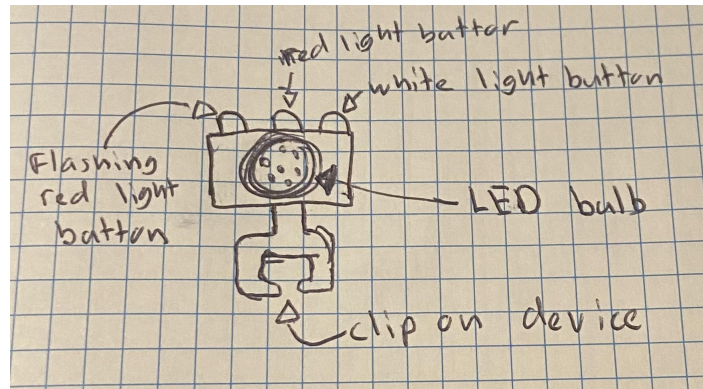 red light button
white light button
Flashing
red light
button
LED bulb
clip on device